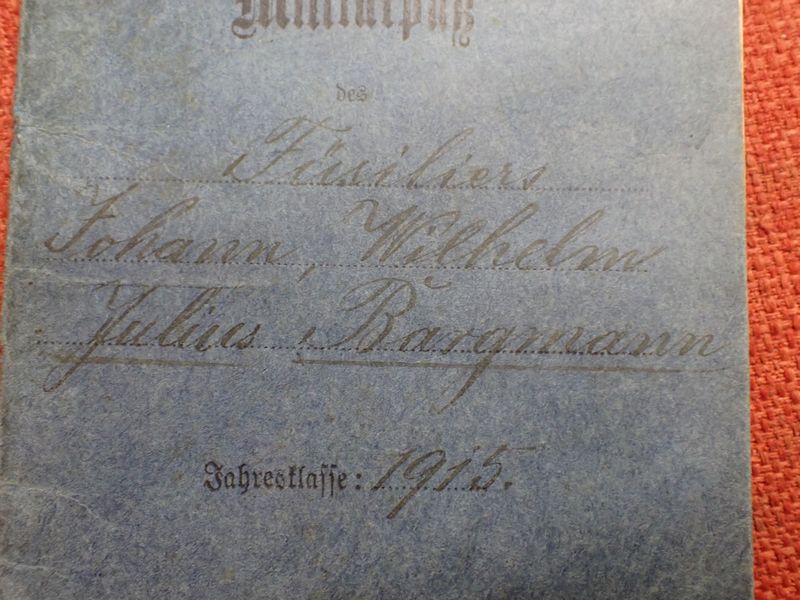 Militärpaß
des
Füsiliers
Johann, Wilhelm
Julius Bargmann
Jahresklasse: 1915.